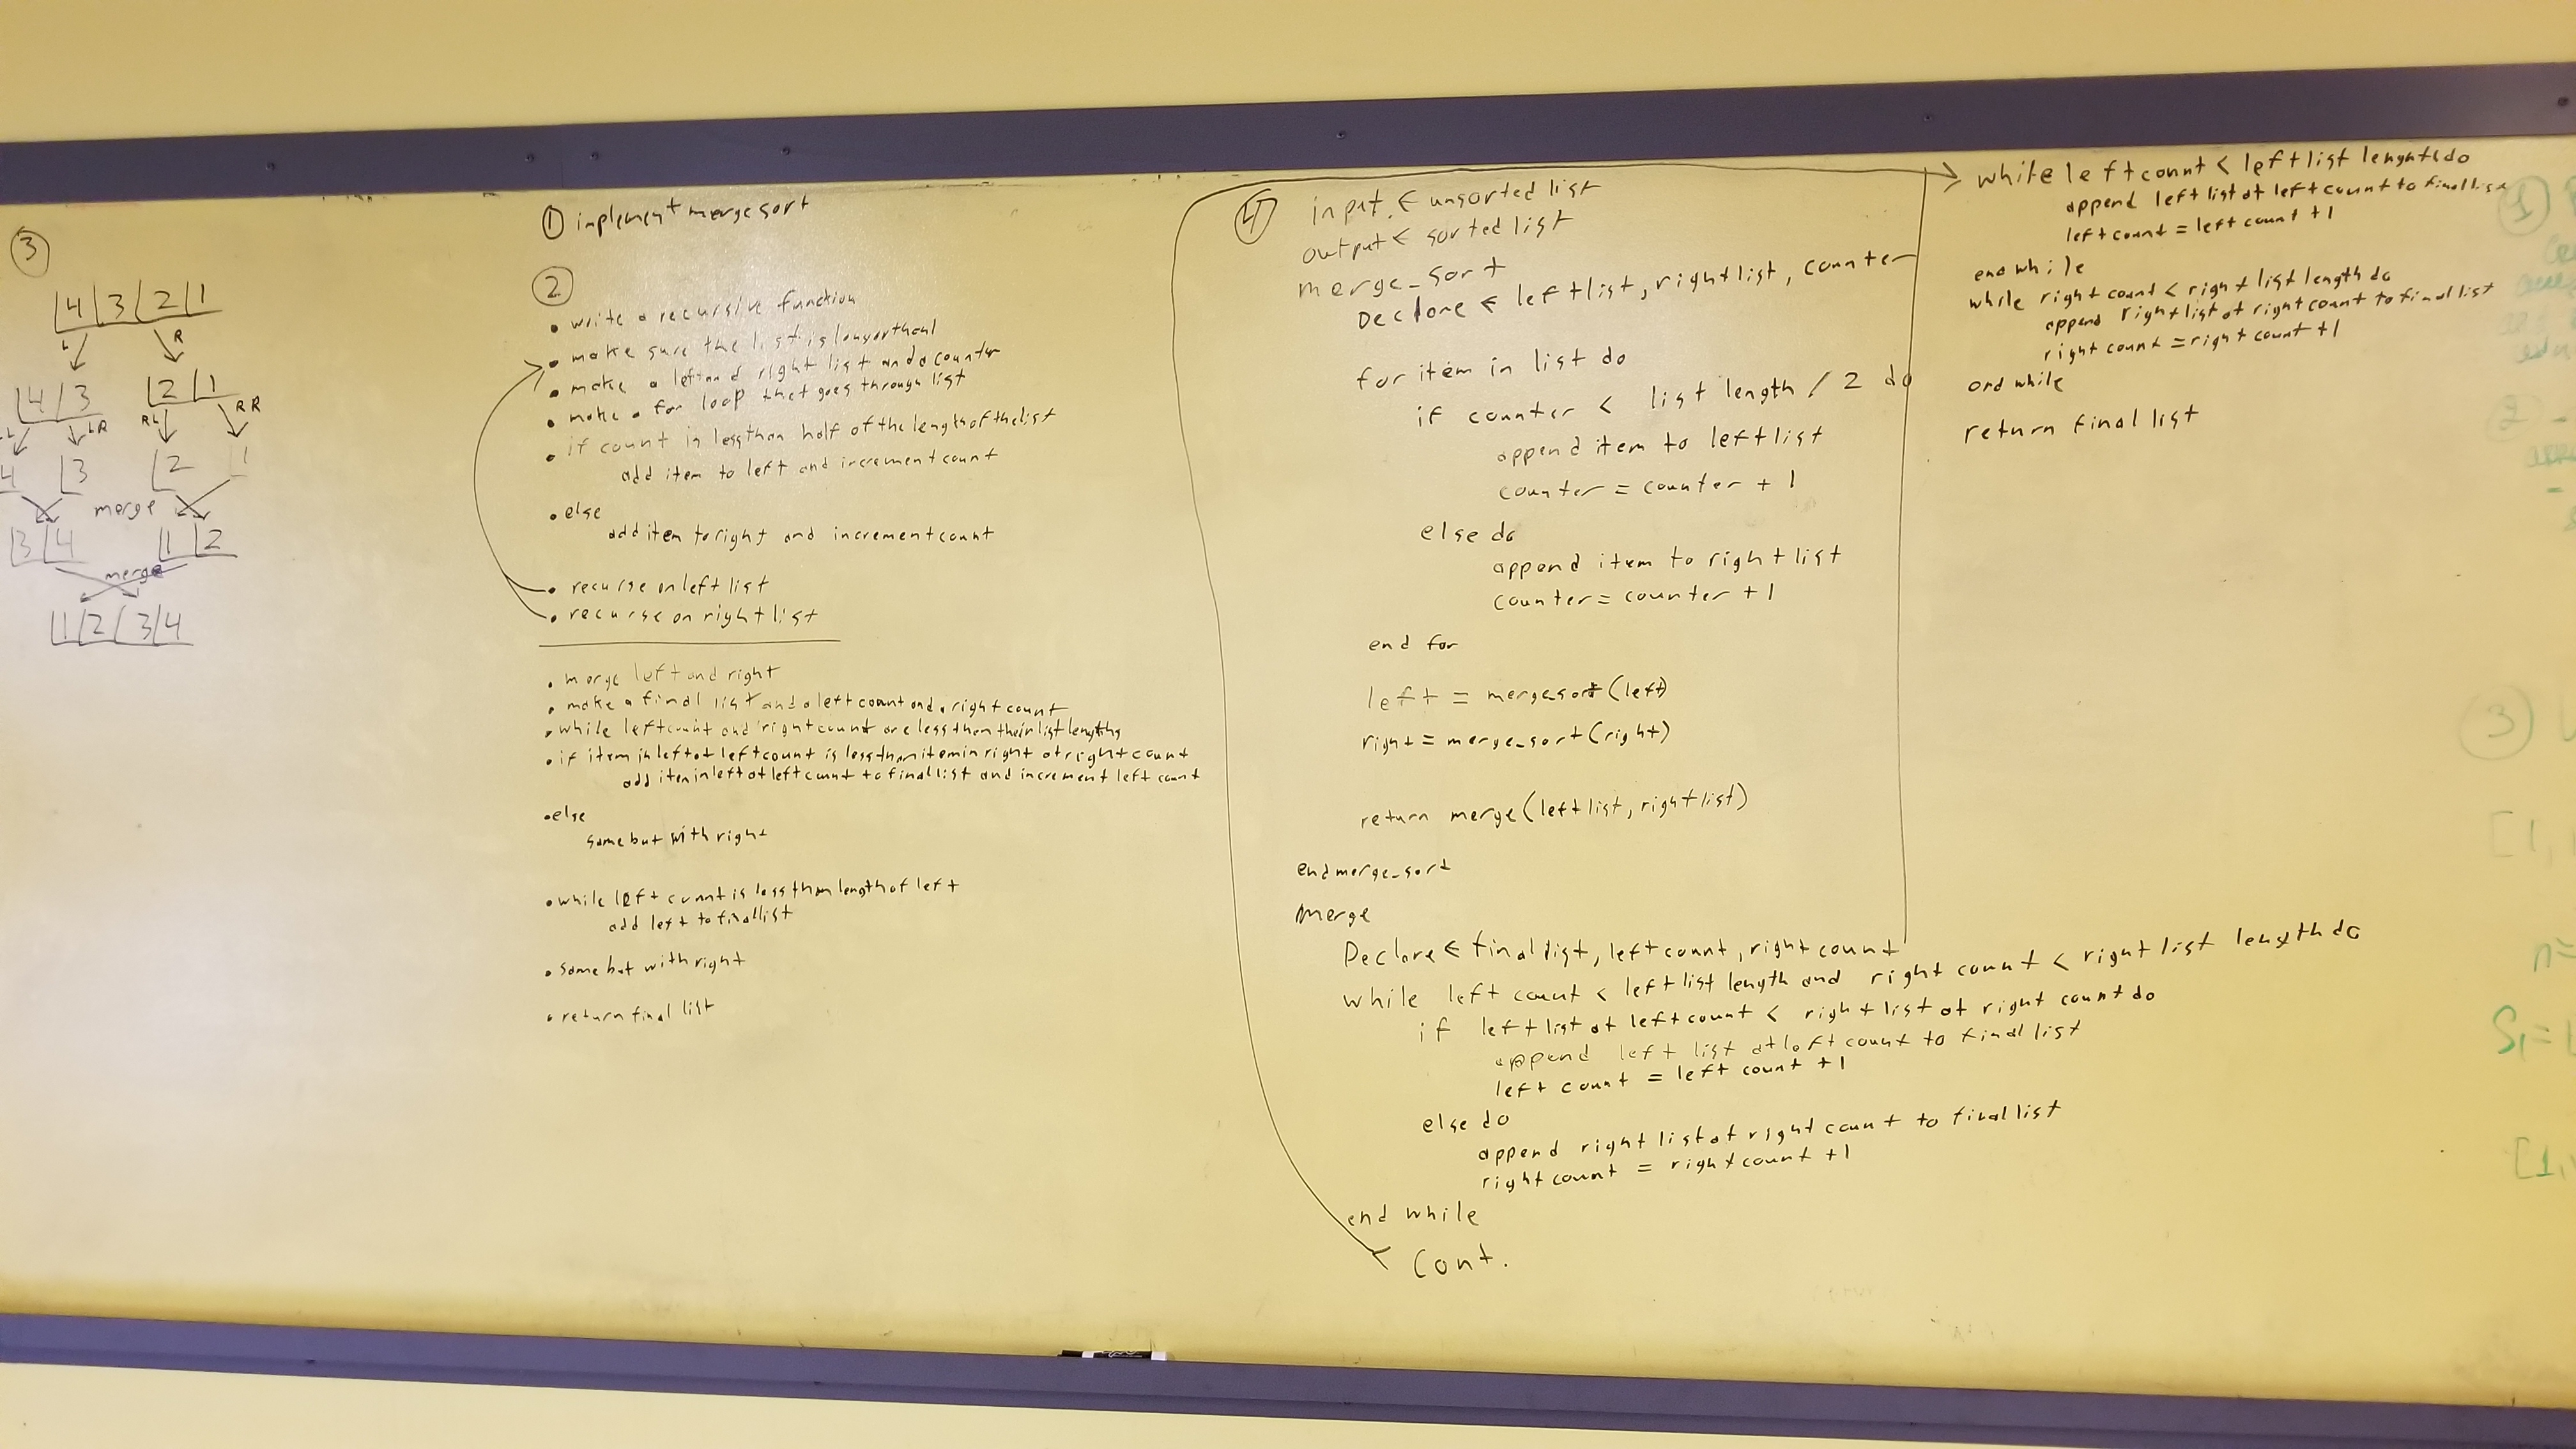 ① implement merge sort
②
• write a recursive function
• make sure the list is longer than 1
• make a left and right list and a counter
• make a for loop that goes through list
• if count in less than half of the length of the list
add item to left and increment count
• else
add item to right and increment count
• recurse on left list
• recurse on right list
• merge left and right
• make a final list and a left count and a right count
• while left count and right count are less then their list lengths
• if item in left at left count is less than item in right at right count
add item in left at left count to final list and increment left count
• else
same but with right
• while left count is less than length of left
add left to final list
• same but with right
• return final list
③
4 3 2 1
L R
4 3 2 1
L LR RL RR
4 3 2 1
merge
3 4 1 2
merge
1 2 3 4
④ input ← unsorted list
output ← sorted list
merge_sort
Declare ← left list, right list, counter
for item in list do
if counter < list length / 2 do
append item to left list
counter = counter + 1
else do
append item to right list
counter = counter + 1
end for
left = merge_sort (left)
right = merge_sort (right)
return merge (left list, right list)
end merge_sort
Merge
Declare ← final list, left count, right count
while left count < left list length and right count < right list length do
if left list at left count < right list at right count do
append left list at left count to final list
left count = left count + 1
else do
append right list at right count to final list
right count = right count + 1
end while
Cont.
while left count < left list lenght do
append left list at left count to final list
left count = left count + 1
end while
while right count < right list length do
append right list at right count to final list
right count = right count + 1
end while
return final list